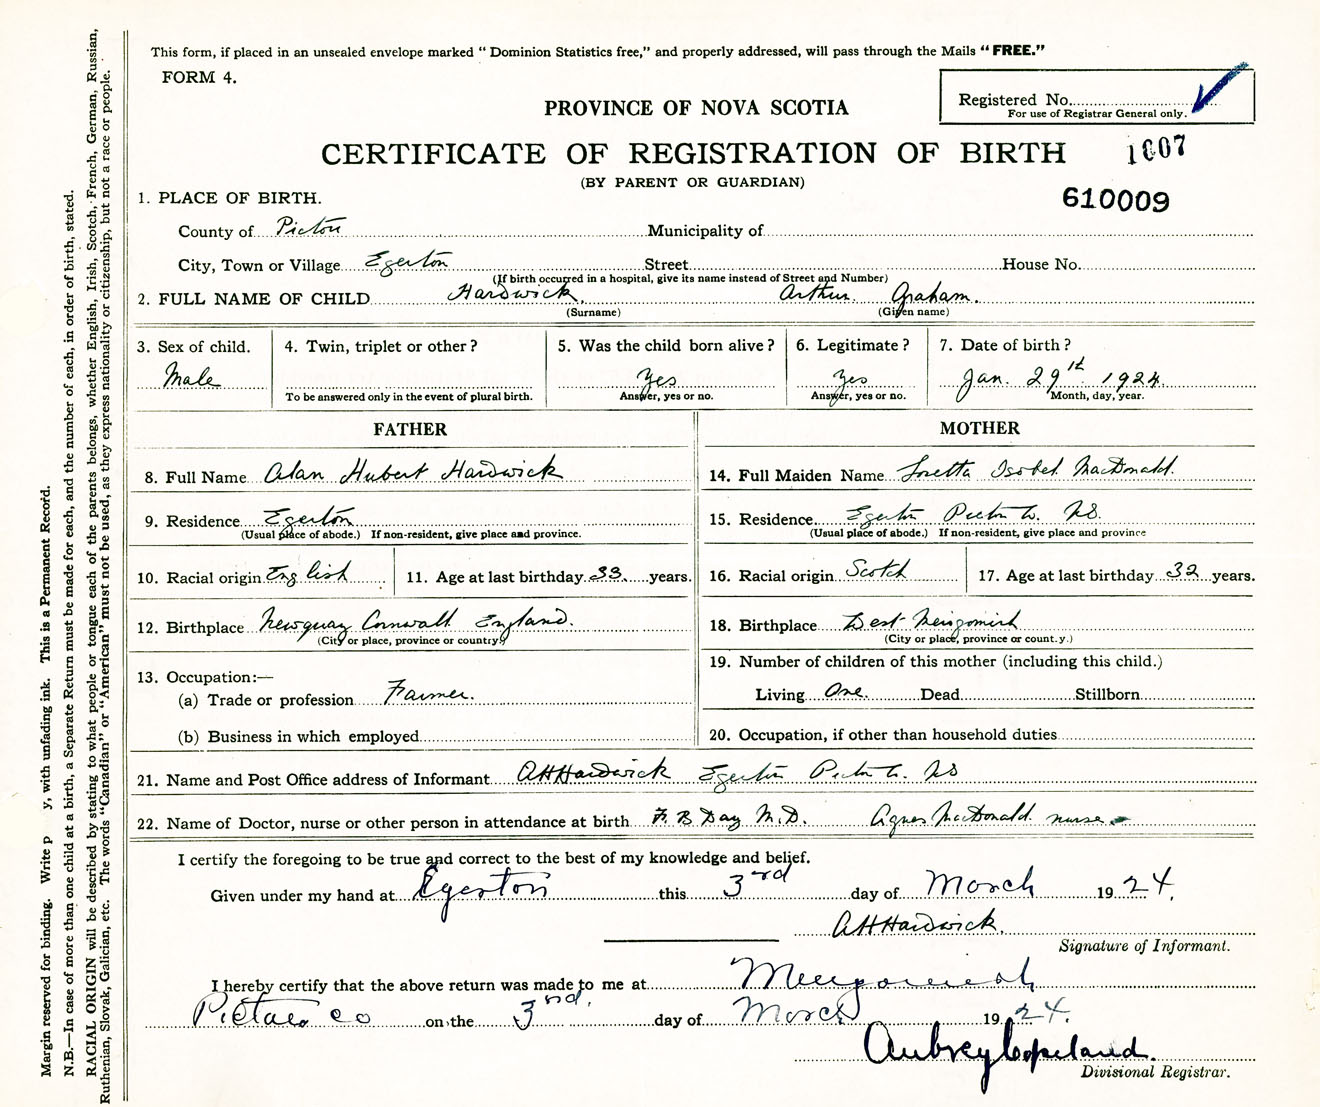 This form, if placed in an unsealed envelope marked " Dominion Statistics free," and properly addressed, will pass through the Mails "FREE."
FORM 4.
Registered No.
For use of Registrar General only.
PROVINCE OF NOVA SCOTIA
CERTIFICATE OF REGISTRATION OF BIRTH
1007
(BY PARENT OR GUARDIAN)
610009
1. PLACE OF BIRTH.
County of Pictou Municipality of
City, Town or Village Egerton Street House No.
(If birth occurred in a hospital, give its name instead of Street and Number)
2. FULL NAME OF CHILD Hardwick, Arthur Graham.
(Surname) (Given name)
3. Sex of child. 4. Twin, triplet or other? 5. Was the child born alive? 6. Legitimate? 7. Date of birth?
Male Yes Yes Jan. 29th 1924.
To be answered only in the event of plural birth. Answer, yes or no. Answer, yes or no. Month, day, year.
FATHER MOTHER
8. Full Name Alan Hubert Hardwick 14. Full Maiden Name Loretta Isobel MacDonald.
9. Residence Egerton 15. Residence Egerton Pictou Co. NS.
(Usual place of abode.) If non-resident, give place and province. (Usual place of abode.) If non-resident, give place and province
10. Racial origin English 11. Age at last birthday 33. years. 16. Racial origin Scotch 17. Age at last birthday 32 years.
12. Birthplace Newquay Cornwall England. 18. Birthplace West Merigomish
(City or place, province or country.) (City or place, province or count.y.)
19. Number of children of this mother (including this child.)
13. Occupation:—
(a) Trade or profession Farmer. Living One. Dead Stillborn
(b) Business in which employed 20. Occupation, if other than household duties
21. Name and Post Office address of Informant AHHardwick Egerton Pictou Co. NS
22. Name of Doctor, nurse or other person in attendance at birth F. B Day M.D. Agnes MacDonald nurse
I certify the foregoing to be true and correct to the best of my knowledge and belief.
Given under my hand at Egerton this 3rd day of March 1924.
AHHardwick.
Signature of Informant.
I hereby certify that the above return was made to me at Merigomish
Pictou Co on the 3rd. day of March 1924.
Aubrey Copeland.
Divisional Registrar.
Margin reserved for binding. Write p y, with unfading ink. This is a Permanent Record.
N.B.—In case of more than one child at a birth, a Separate Return must be made for each, and the number of each, in order of birth, stated.
RACIAL ORIGIN will be described by stating to what people or tongue each of the parents belongs, whether English, Irish, Scotch, French, German, Russian,
Ruthenian, Slovak, Galician, etc. The words "Canadian" or "American" must not be used, as they express nationality or citizenship, but not a race or people.